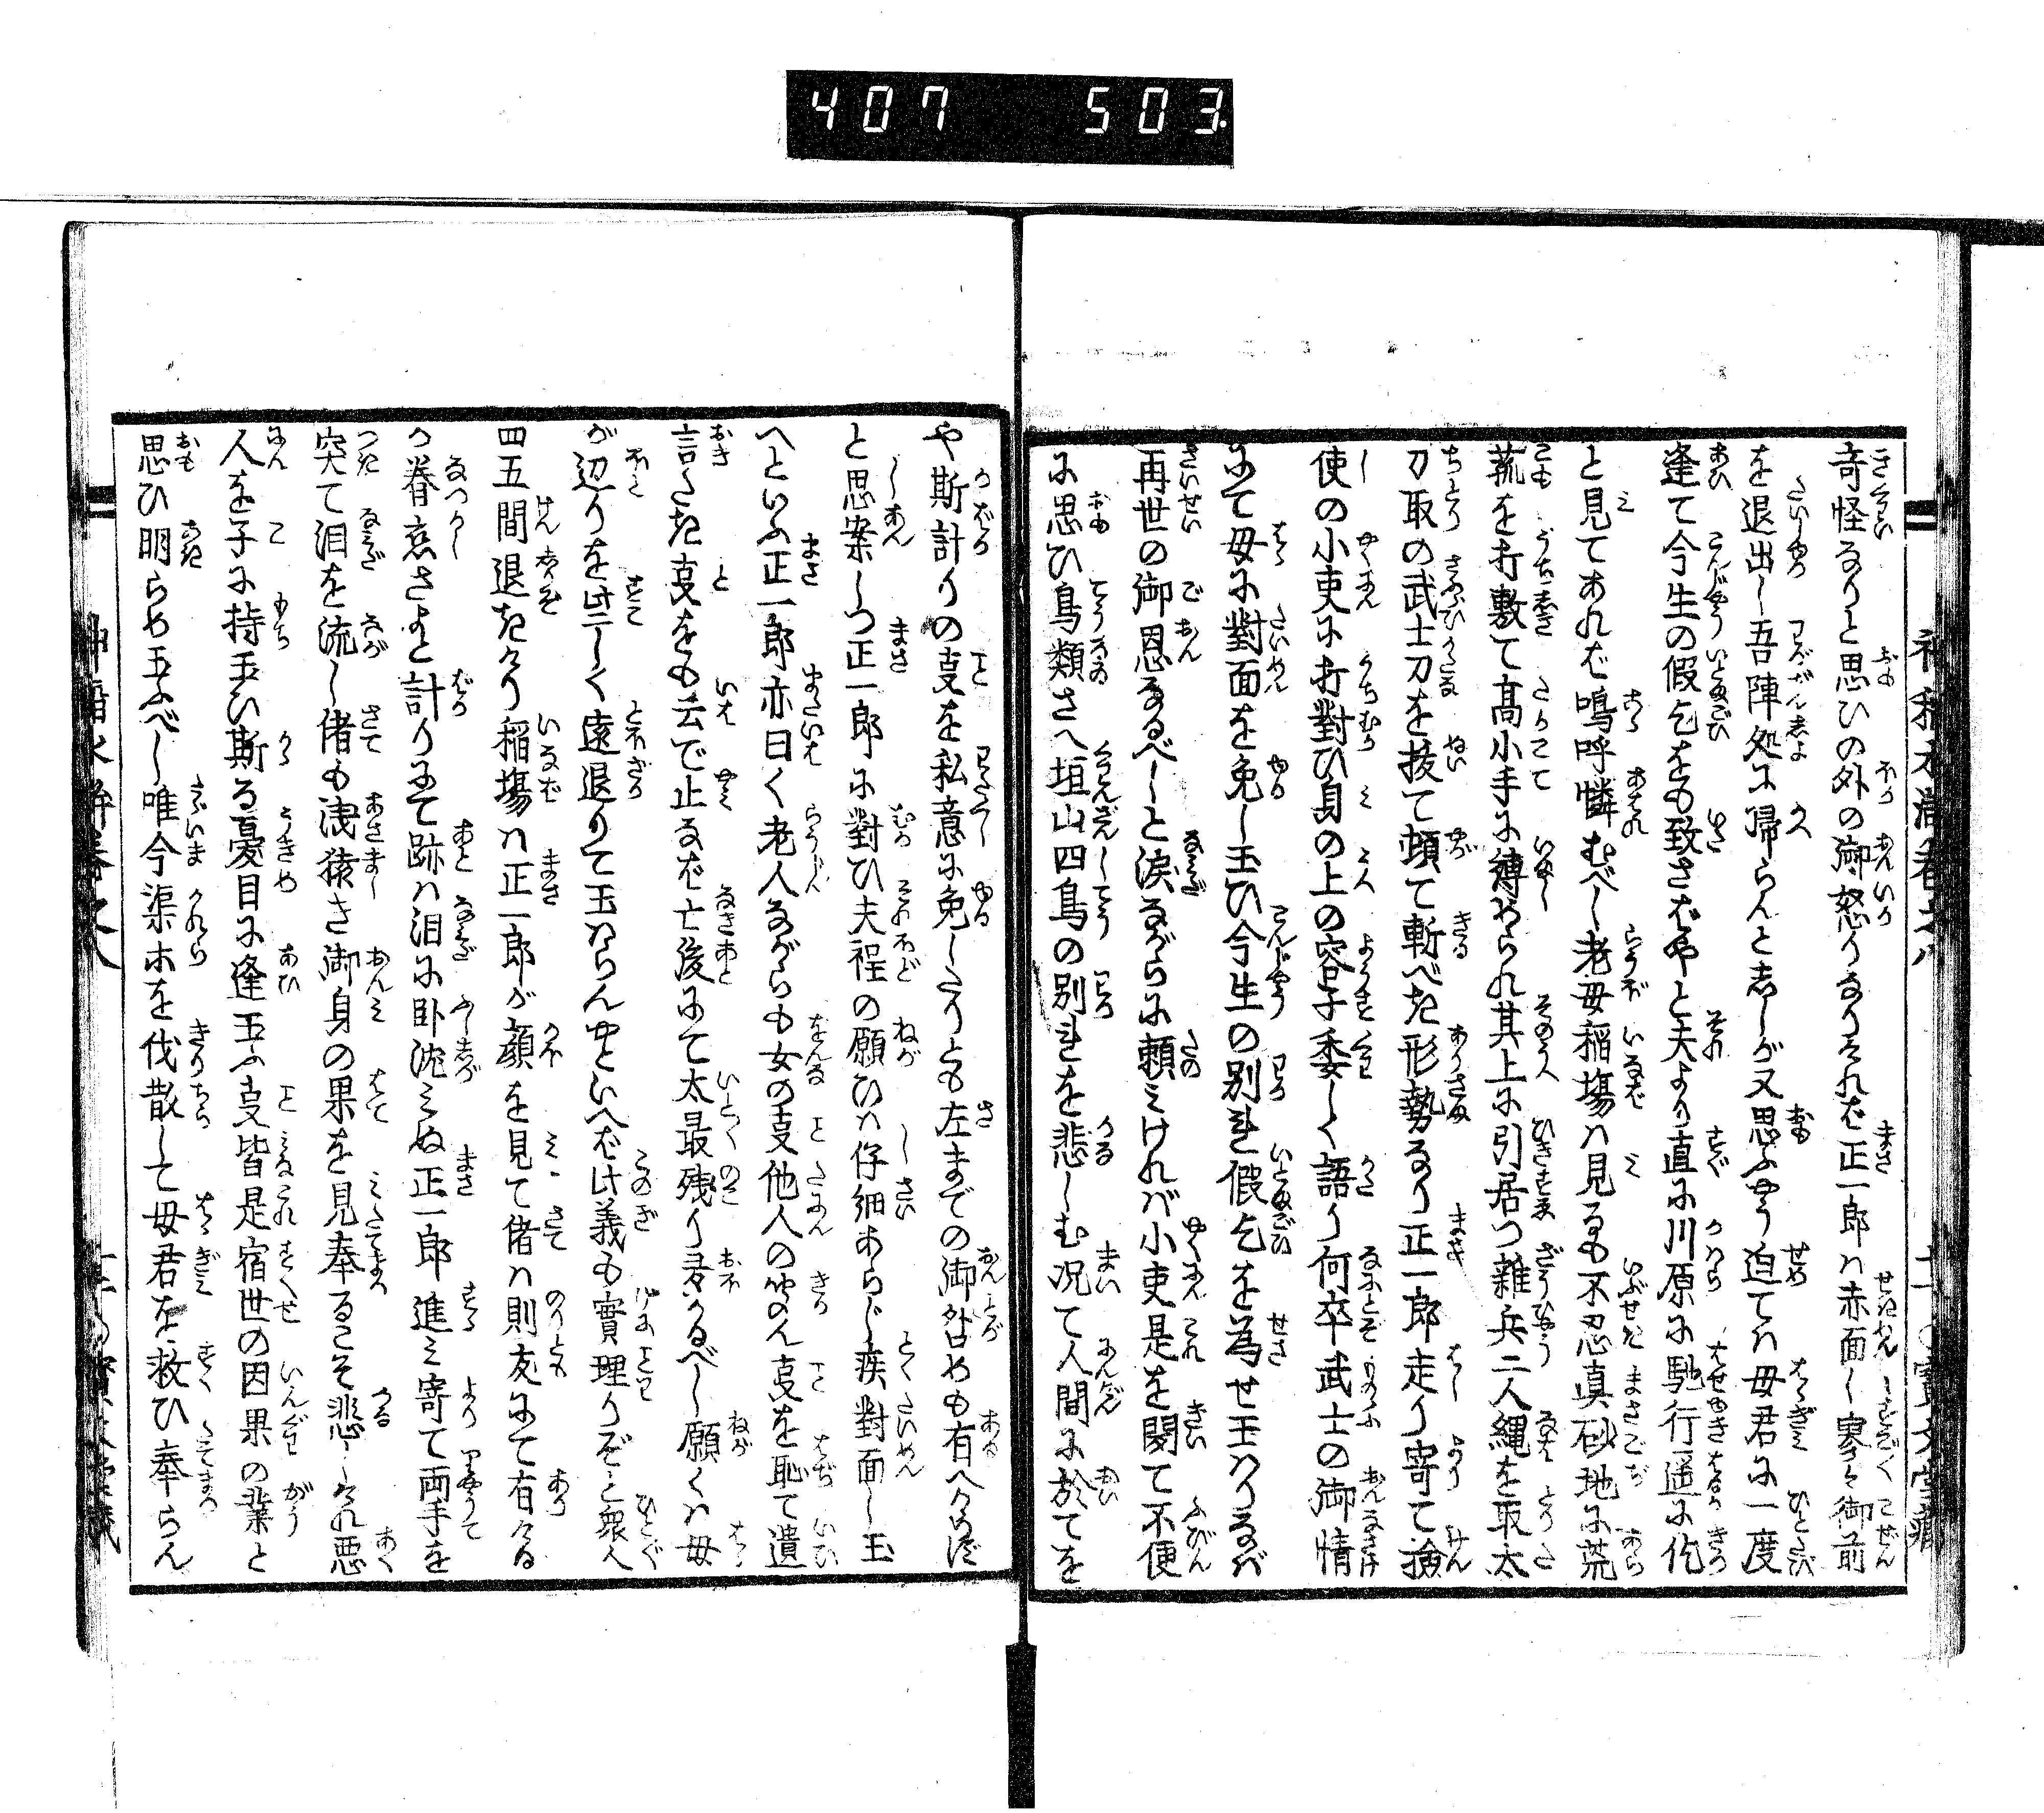 407 503
奇怪なりと思ひの外の御怒りなりければ正一郎ハ赤面し寥々御前
を退出し吾陣処に帰らんと志しが又思ふやう迫てハ母君に一度
逢て今生の假乞をも致さばやと夫より直に川原に馳行遥に伺
と見てあれば嗚呼憐むべし老母稲場ハ見るも不忍真砂地に荒
菰を打敷て高小手に縛められ其上に引居つ雑兵二人縄を取太
刀取の武士刀を抜て頓て斬べき形勢なり正一郎走り寄て撿
使の小吏に打對ひ身の上の容子委しく語り何卒武士の御情
にて母に對面を免し玉ひ今生の別れ假乞を為せ玉ハりなバ
再世の御恩なるべしと涙ながらに頼ミけれバ小吏是を聞て不便
に思ひ鳥類さへ垣山四鳥の別れを悲しむ况て人間に於てを
や斯計りの叓を私意に免したりとも左までの御咎めも有へからず
と思案しつ正一郎に對ひ夫程の願ひハ仔細あらじ疾對面し玉
へといふ正一郎亦曰く老人ながらも女の叓他人の聞ん叓を恥て遺
言したき叓をも云で止なば亡後にて太最残り多かるべし願くハ母
が辺りを些しく遠退りて玉ハらんやといへば此義も實理りぞと衆人
四五間退きけり稲場ハ正一郎が顔を見て偖ハ則友にて有ける
か眷恋さよと計りにて跡ハ泪に臥沈ミぬ正一郎進ミ寄て両手を
突て泪を流し偖も浅猿き御身の果を見奉るこそ悲しけれ悪
人を子に持玉ひ斯る憂目に逢玉ふ叓皆是宿世の因果の業と
思ひ明らめ玉ふべし唯今渠等を伐散して母君を救ひ奉らん